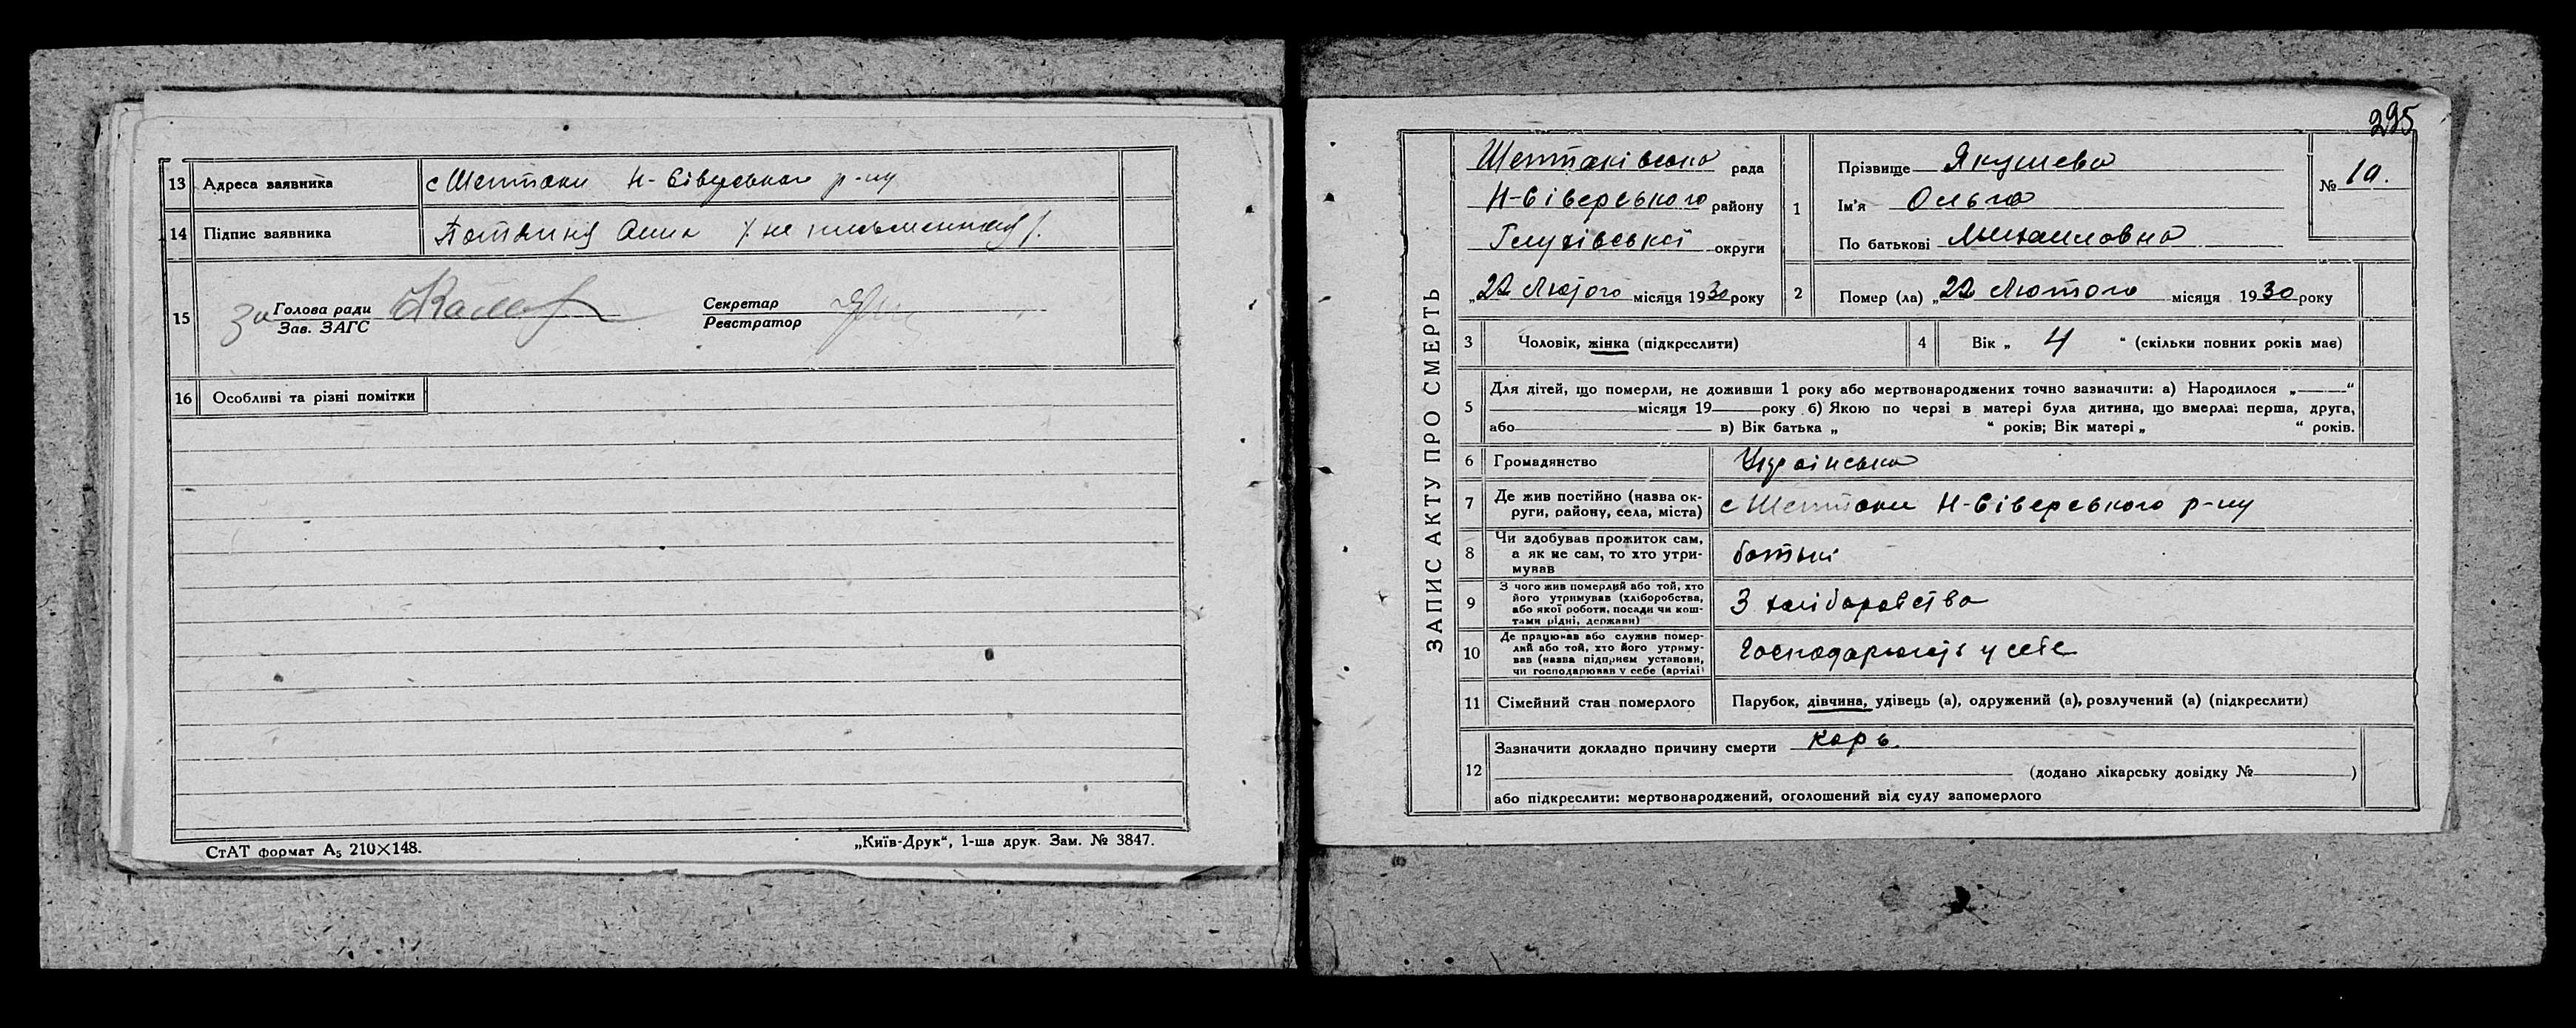 13 Адреса заявника с Шептаки Н-Сіверського р-ну
14 Підпис заявника Анна /не письменная/.
15 За Голова ради Секретар
Зав. ЗАГС Реєстратор
16 Особливі та різні помітки
СтАТ формат А5 210×148. „Київ-Друк“, 1-ша друк. Зам. № 3847.
295
ЗАПИС АКТУ ПРО СМЕРТЬ
Шептаківська рада
Н-Сіверського району
Глухівської округи
„22 Лютого місяця 1930 року
1 Прізвище Якушева
Ім'я Ольга
По батькові Михаиловна
№ 10.
2 Помер (ла) „22 Лютого місяця 1930 року
3 Чоловік, жінка (підкреслити)
4 Вік „ 4 “ (скільки повних років має)
5 Для дітей, що померли, не доживши 1 року або мертвонароджених точно зазначити: а) Народилося „ “
місяця 19 року б) Якою по черзі в матері була дитина, що вмерла: перша, друга,
або в) Вік батька „ “ років; Вік матері „ “ років.
6 Громадянство Українська
7 Де жив постійно (назва ок-
руги, району, села, міста) с Шептаки Н-Сіверського р-ну
8 Чи здобував прожиток сам,
а як не сам, то хто утри-
мував батьки
9 З чого жив померлий або той, хто
його утримував (хліборобства,
або якої роботи, посади чи кош-
тами рідні, держави) З хліборобства
10 Де працював або служив помер-
лий або той, хто його утриму-
вав (назва підприєм установи,
чи господарював у себе (артілі) Господарюють у себе
11 Сімейний стан померлого Парубок, дівчина, удівець (а), одружений (а), розлучений (а) (підкреслити)
12 Зазначити докладно причину смерти Корь.
(додано лікарську довідку № )
або підкреслити: мертвонароджений, оголошений від суду запомерлого